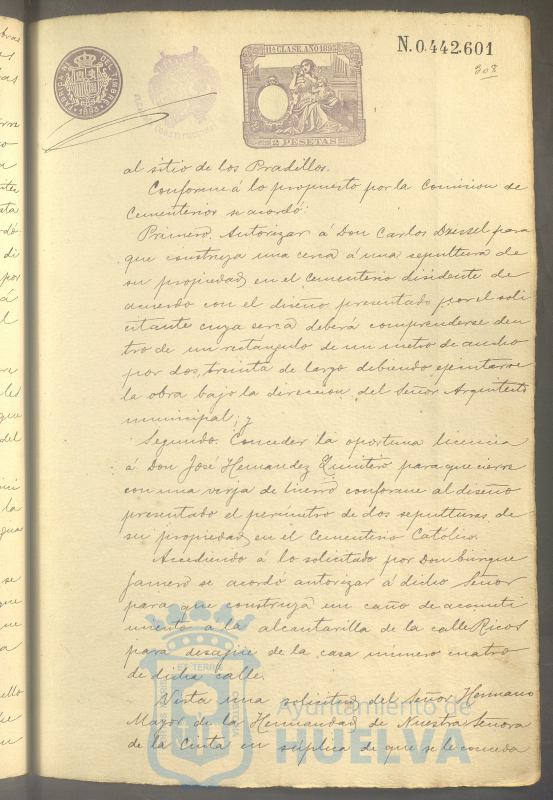 N.0.442.601
308
11ª CLASE, AÑO 1893
2 PESETAS
al sitio de los Pradillos.
Conforme á lo propuesto por la Comision de
Cementerios se acordó:
Primero. Autorizar á Don Carlos para
que construya una cerca á una sepultura de
su propiedad en el cementerio disidente de
acuerdo con el diseño presentado por el soli
citante cuya cerca deberá comprenderse den
tro de un rectángulo de un metro de ancho
por dos, treinta de largo debiendo ejecutarse
la obra bajo la direccion del Señor Arquitecto
municipal; y
Segundo. Conceder la oportuna licencia
á Don José Hernandez Quintero para que cierre
con una verja de hierro conforme al diseño
presentado el perímetro de dos sepulturas de
su propiedad en el Cementerio Católico.
Accediendo á lo solicitado por Don
se acordó autorizar á dicho Señor
para que construya un caño de acometi
miento a la alcantarilla de la calle Ricos
para desagüe de la casa número cuatro
de dicha calle.
Vista una solicitud del Señor Hermano
Mayor de la Hermandad de Nuestra Señora
de la Cinta en súplica de que se le conceda
Ayuntamiento de
HUELVA